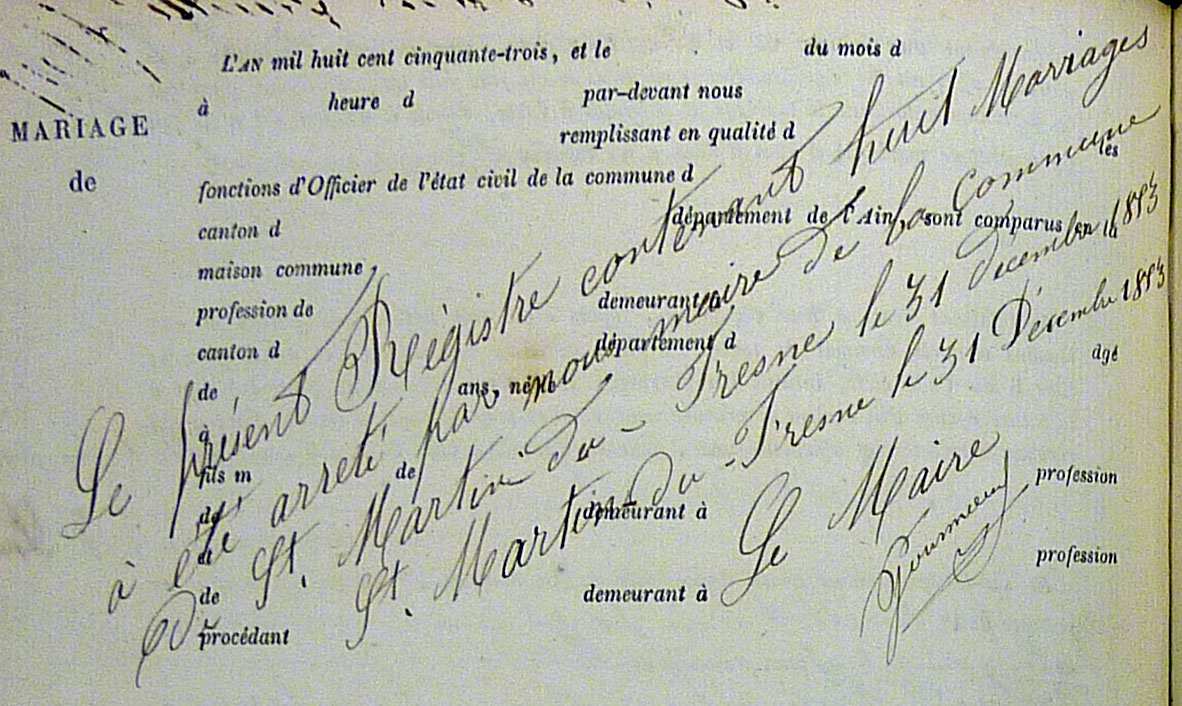 L'AN mil huit cent cinquante-trois, et le du mois d
à heure d par-devant nous
MARIAGE
remplissant en qualité d
de
fonctions d'Officier de l'état civil de la commune d les
canton d département de l'Ain, sont comparus en la
maison commune
profession de demeurant à
canton d département d
de ans, né âgé
à
fils m de profession
de demeurant à
et de profession
de demeurant à
procédant
Le présent Régistre contenant huit Marriages
à eté arreté par nous maire de la Commune
De St. Martin-du-Fresne le 31 décembre 1853
St. Martin-du-Fresne le 31 Décembre 1853
Le Maire